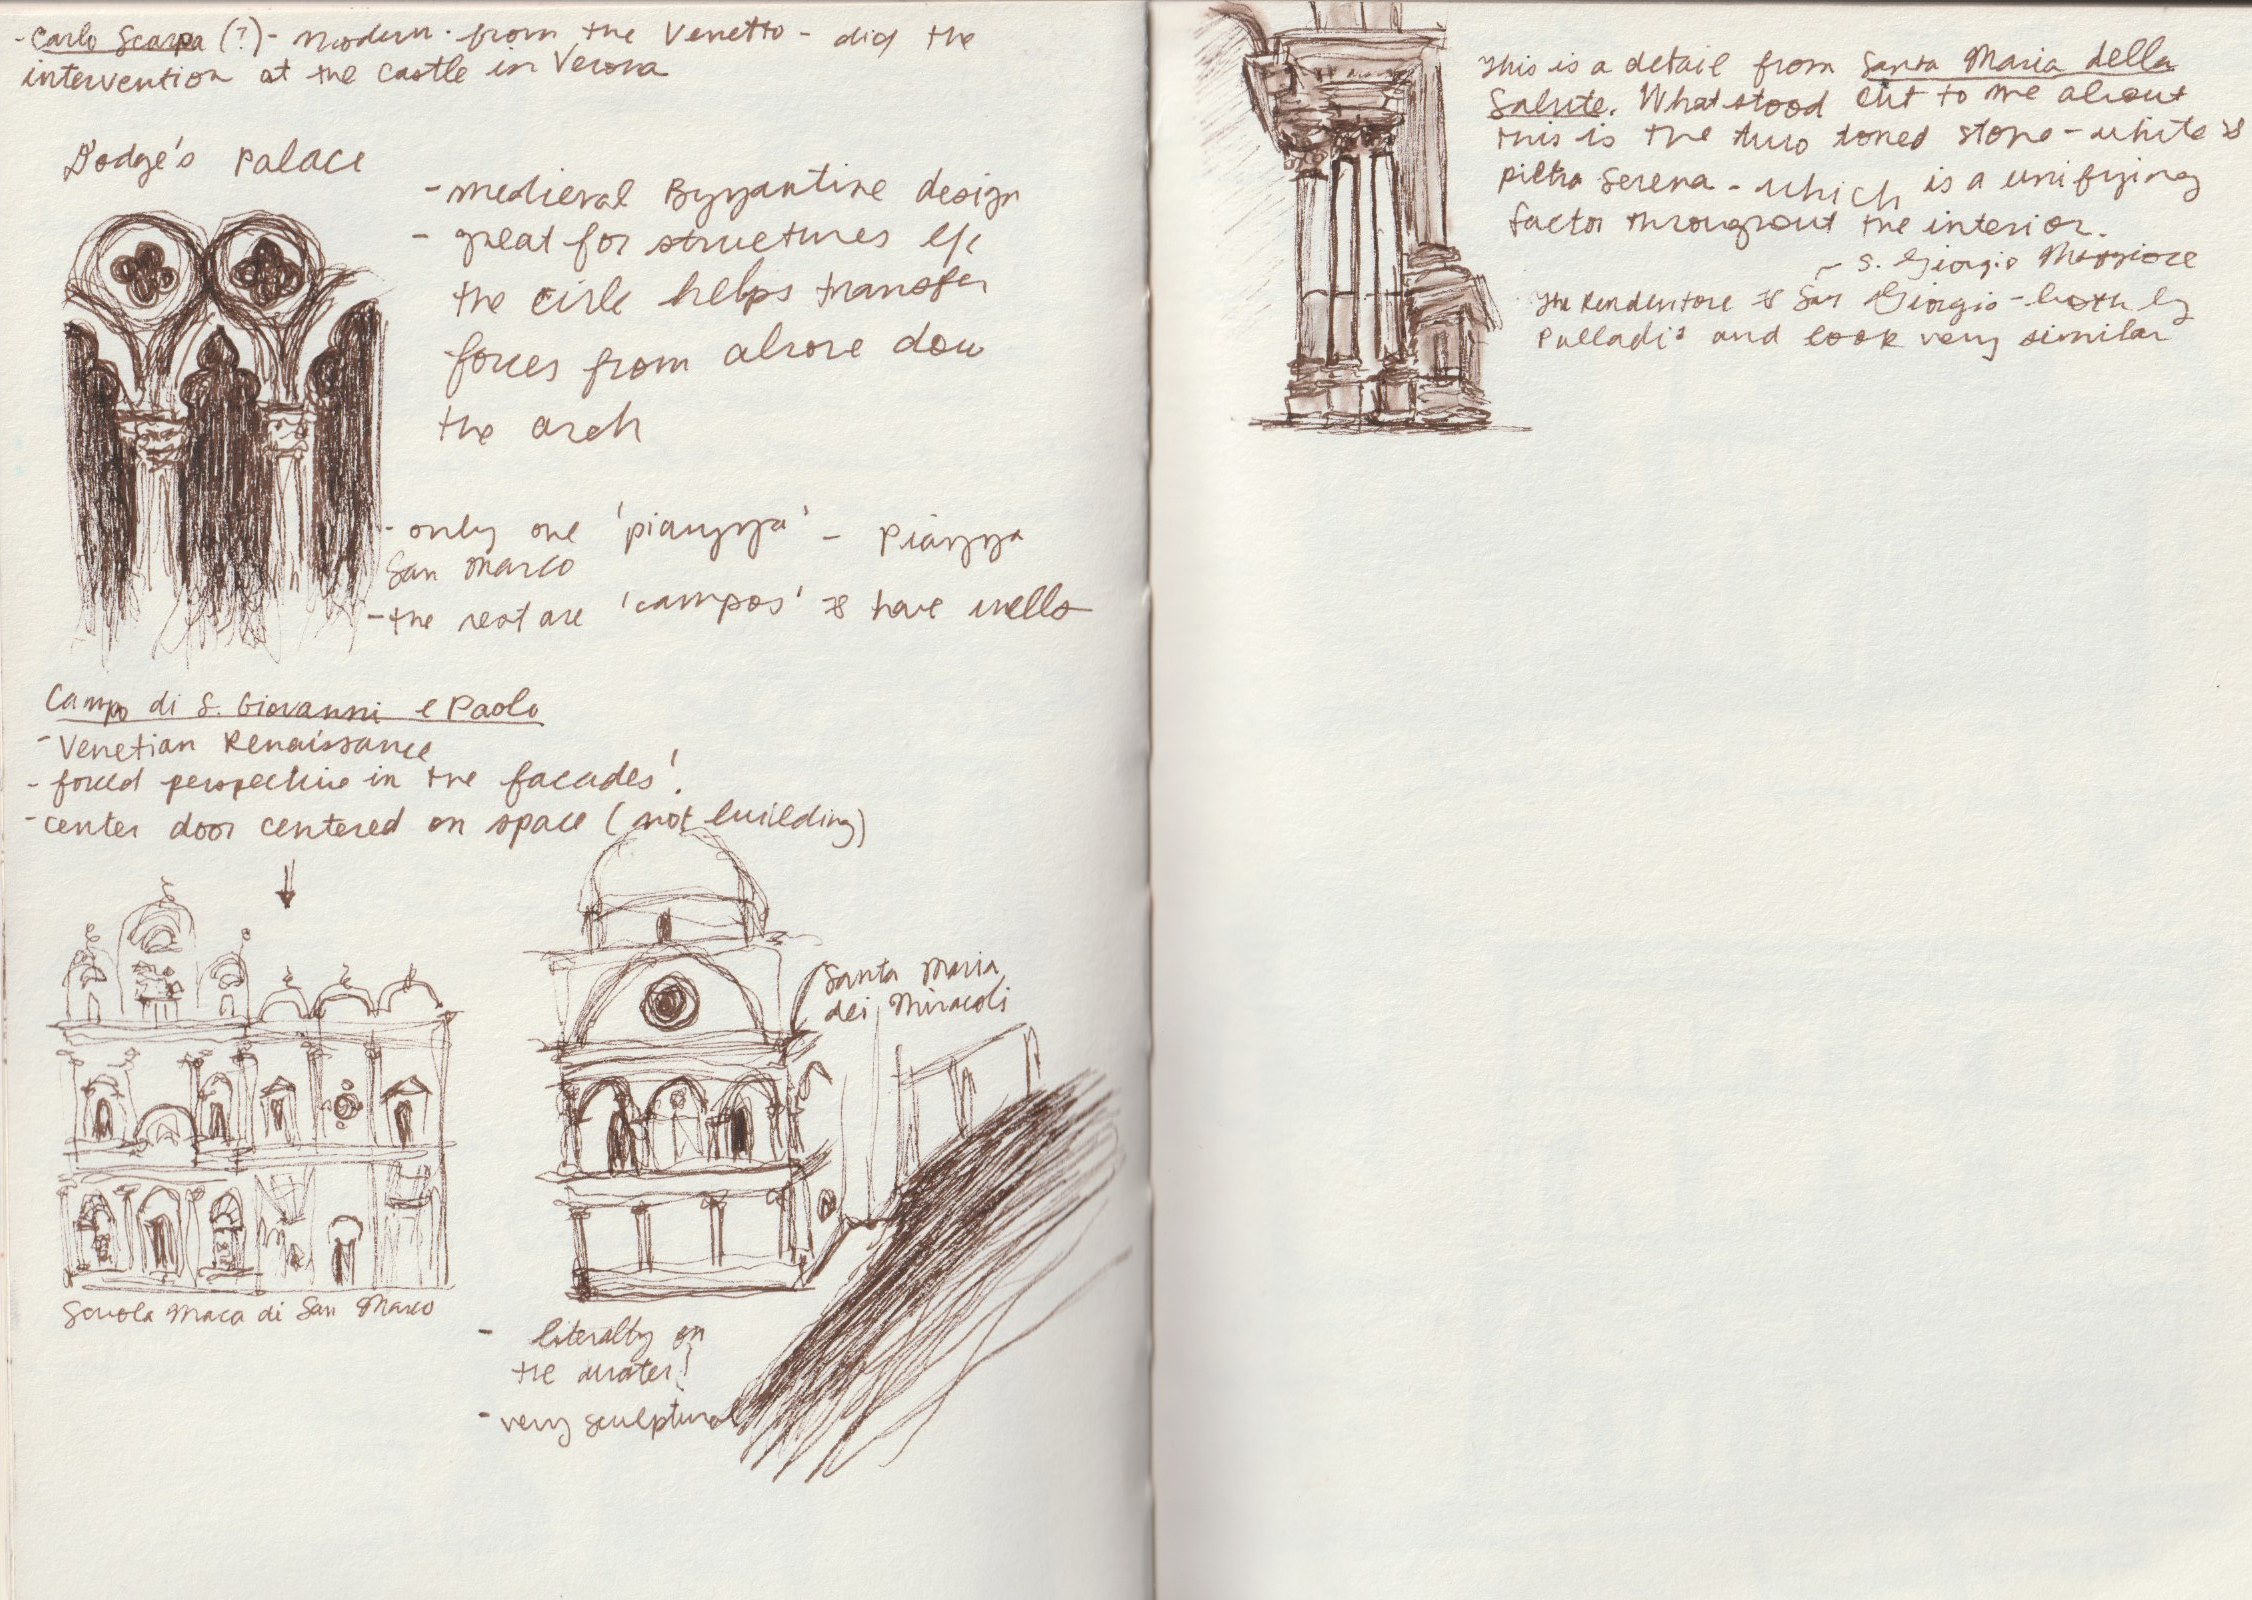 - Carlo Scarpa (?) - modern - from the Venetto - did the
intervention at the castle in Verona
Dodge's Palace
- medieval Byzantine design
- great for structures b/c
the cirle helps transfer
forces from above dow
the arch
- only one 'piazza' - Piazza
San Marco
- the rest are 'campos' & have wells
Campo di S. Giovanni e Paolo
- Venetian Renaissance
- forced perspective in the facades!
- center door centered on space (not building)
Santa Maria
dei Miracoli
Scuola Maca di San Marco
- literally on
the water!
- very sculptural
This is a detail from Santa Maria della
Salute. What stood out to me about
this is the two toned stone - white &
pietra serena - which is a unifying
factor throughout the interior.
~ S. Giorgio Maggiore
The Rendentore & San Giorgio - both by
Palladio and look very similar